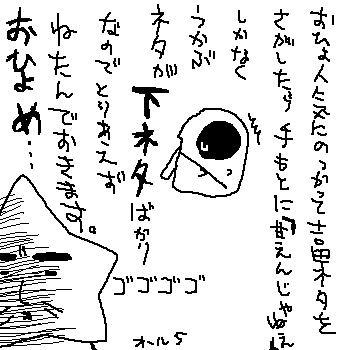 おひょ人気にのっかって ネタを
さがしたら手もとに「甘えんじゃねえ
しかなく
うかぶ
ネタが
下ネタばかり
なのでとりあえず
ねたんでおきます。
おひょめ…
ゴゴゴゴ
オール5